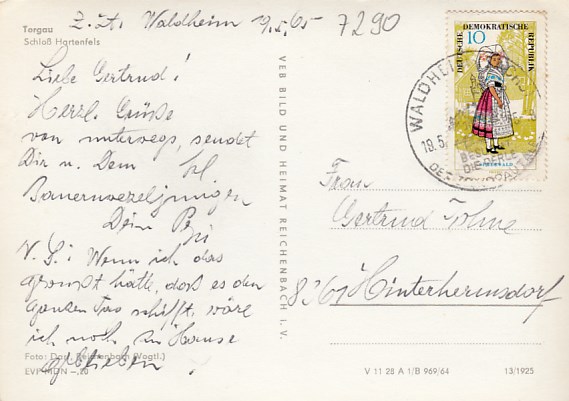 Torgau
Schloß Hartenfels
Z. Zt. Waldheim 19.5.65 7290
Liebe Gertrud!
Herzl. Grüße
von unterwegs, sendet
Dir u. Dem
Dein
P.S: Wenn ich das
gewußt hätte, daß es den
ganzen Tag schifft, wäre
ich noch zu Hause
geblieben
Foto: Darr, Reichenbach (Vogtl.)
EVP MDN -,20
VEB BILD UND HEIMAT REICHENBACH i. V.
DEUTSCHE DEMOKRATISCHE REPUBLIK
10
WALDHEIM
19.5.
Frau
Gertrud
8361 Hinterhermsdorf
V 11 28 A 1/B 969/64
13/1925